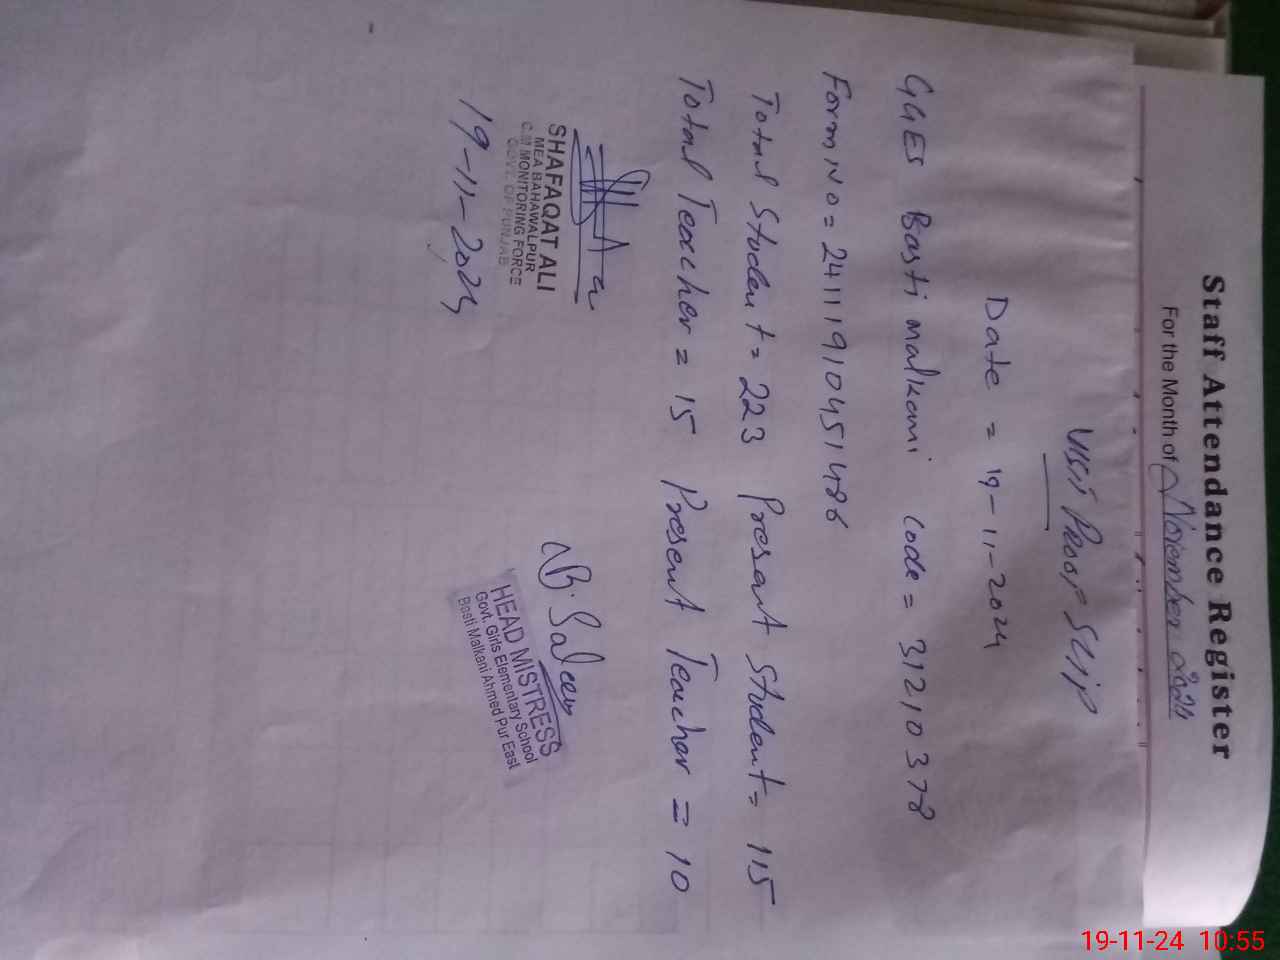 Staff Attendance Register
For the Month of November 2024
VISIT PROOF SLIP
Date = 19-11-2024
GGES Basti malkani Code = 31210378
Form No = 24111910451486
Total Student = 223 Present Student = 115
Total Teacher = 15 Present Teacher = 10
SHAFAQAT ALI
MEA BAHAWALPUR
C.M MONITORING FORCE
GOVT. OF PUNJAB
19-11-2024
B. Saleem
HEAD MISTRESS
Govt. Girls Elementary School
Basti Malkani Ahmed Pur East
19-11-24 10:55